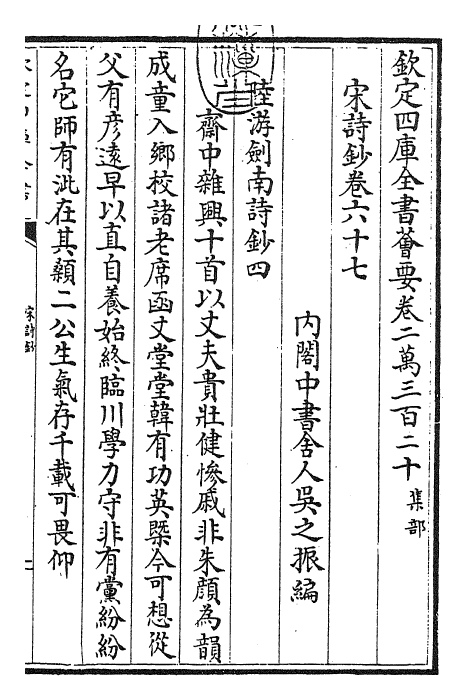 欽定四庫全書薈要卷二萬三百二十 集部
宋詩鈔卷六十七
內閣中書舍人吳之振編
陸游劍南詩鈔四
齋中雜興十首以丈夫貴壯健慘戚非朱顏為韻
成童入鄉校諸老席函丈堂堂韓有功英槩今可想從
父有彦遠早以直自養始終臨川學力守非有黨紛紛
名它師有泚在其顙二公生氣存千載可畏仰
宋詩鈔